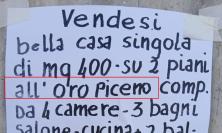 Vendesi
bella casa singola
di mq 400-su 2 piani
all'oro Piceno comp.
Da 4 camere-3 bagni
salone-cucina+2 bal-